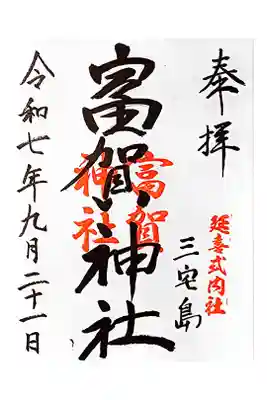 奉拝
延喜式内社
三宅島
富賀神社
富賀
神社
令和七年九月二十一日